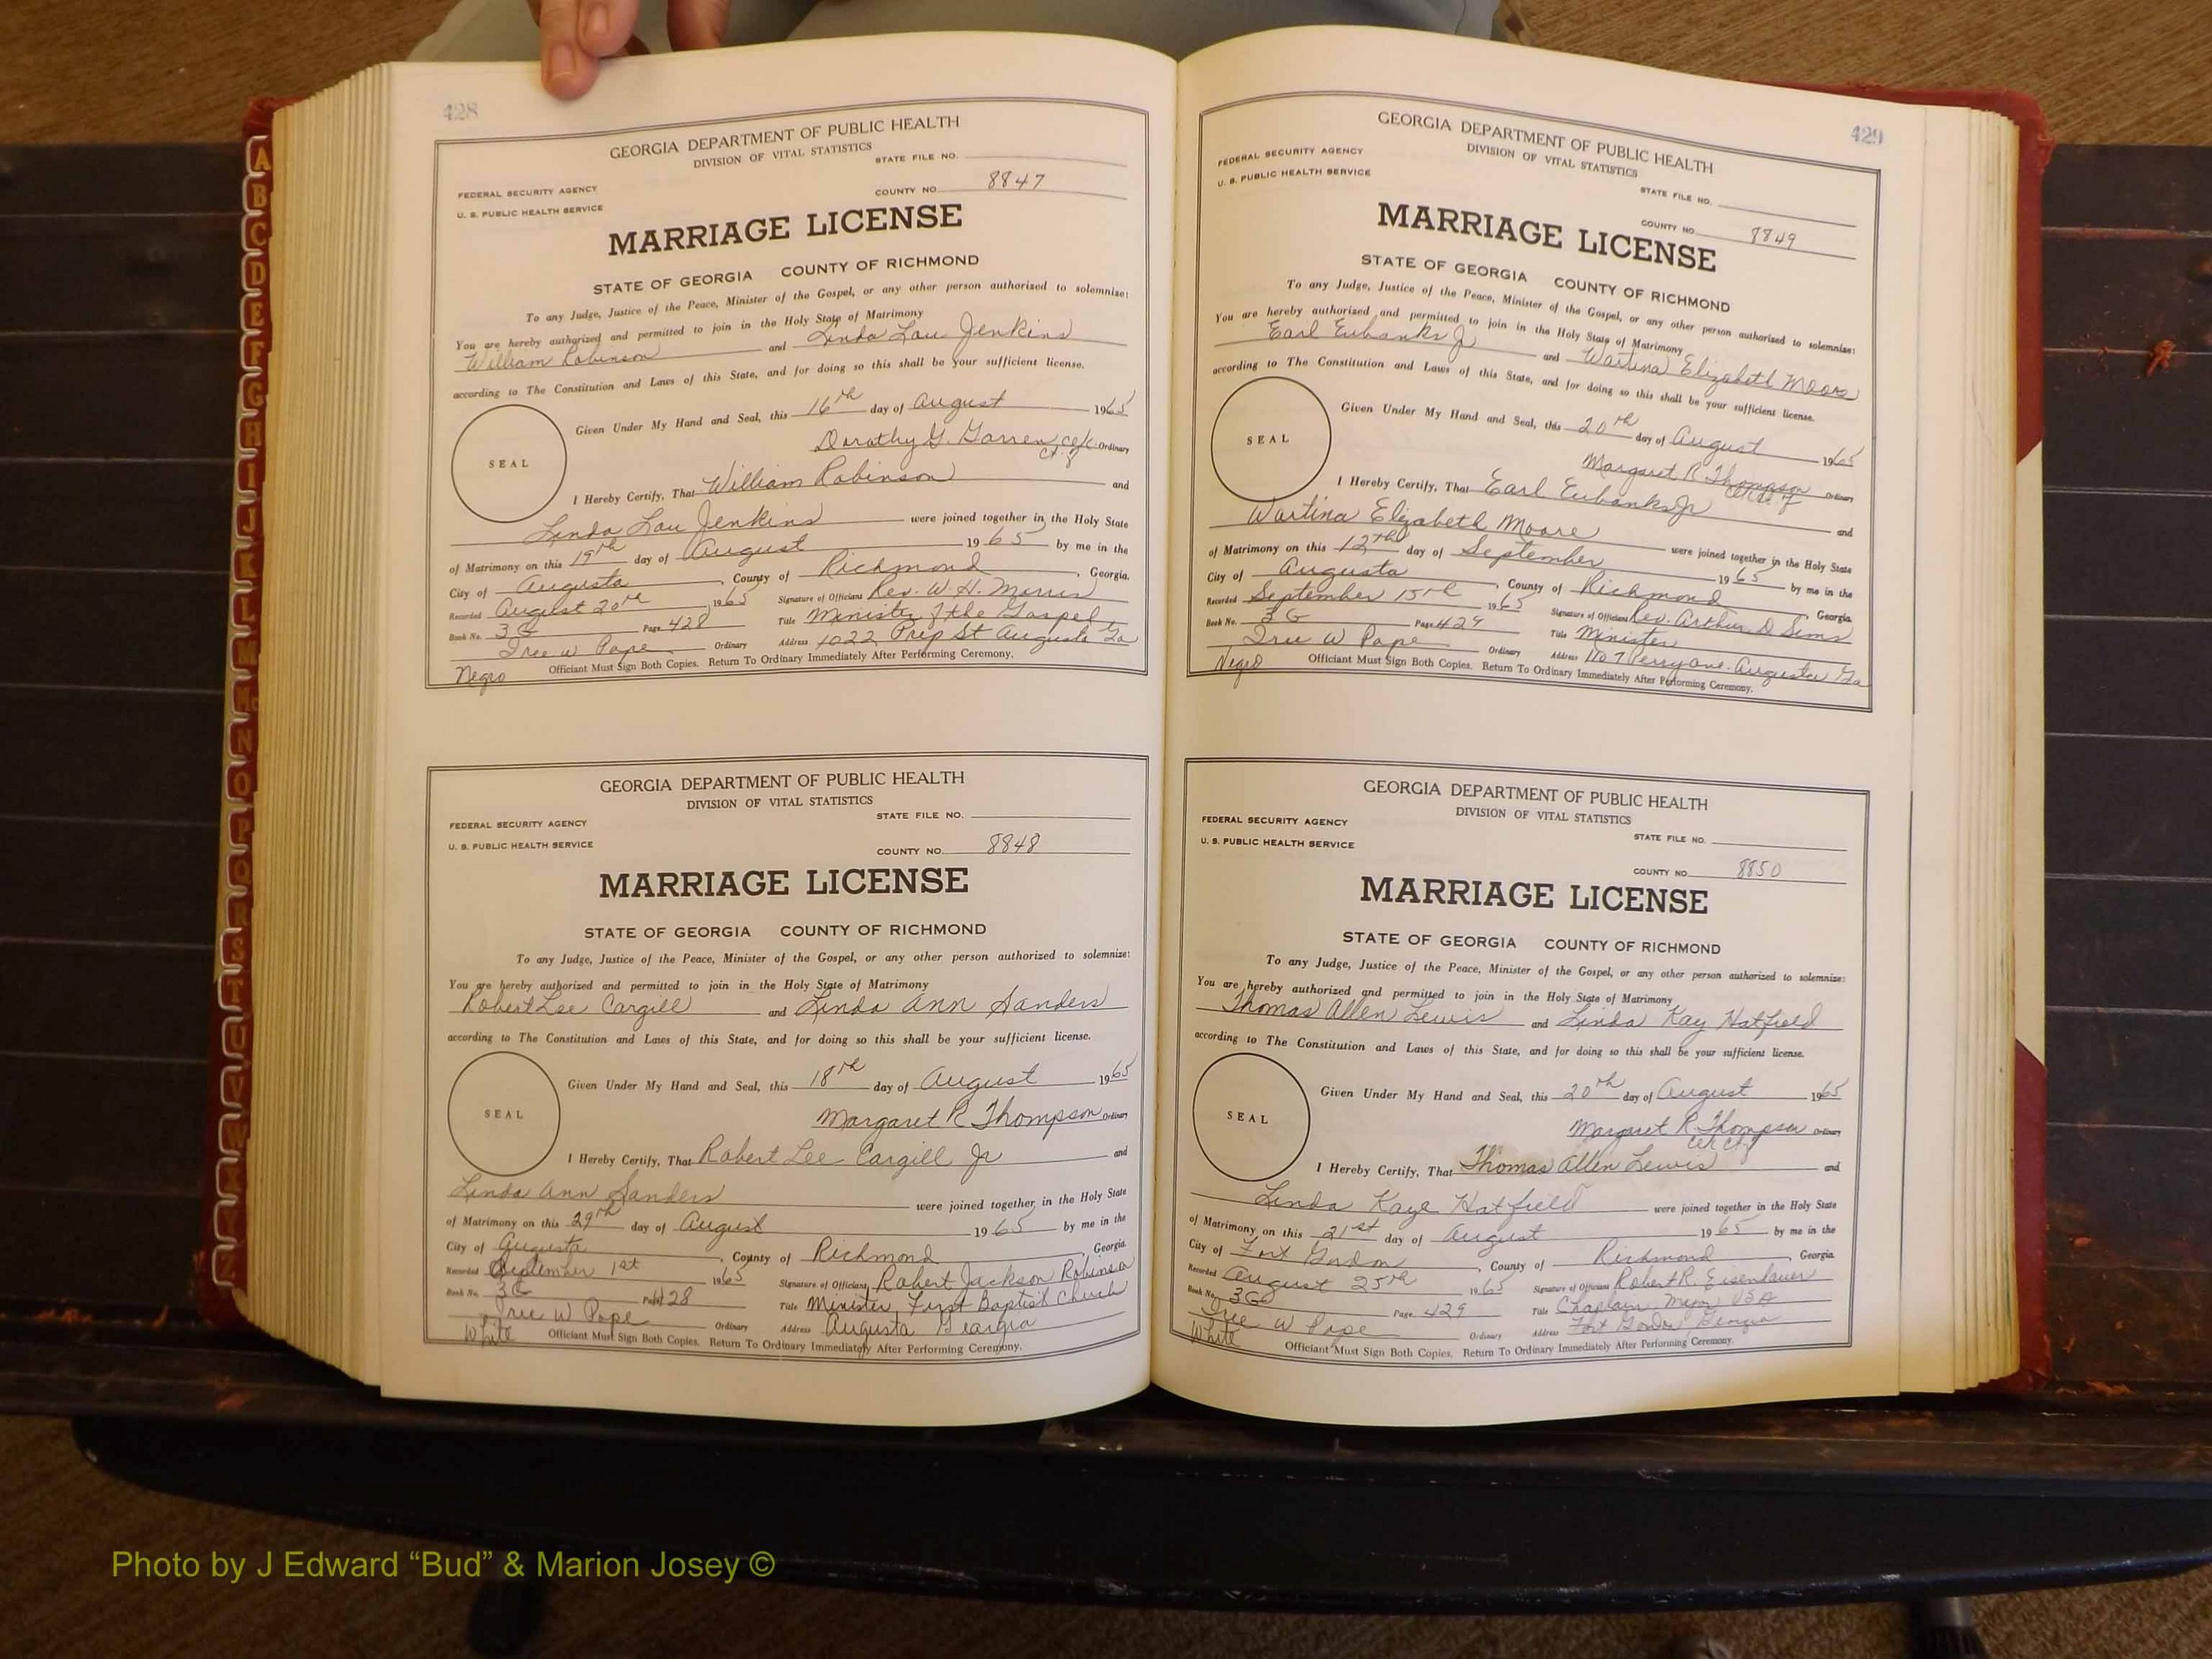 428
GEORGIA DEPARTMENT OF PUBLIC HEALTH
DIVISION OF VITAL STATISTICS
STATE FILE NO.
FEDERAL SECURITY AGENCY
U. S. PUBLIC HEALTH SERVICE
COUNTY NO. 8847
MARRIAGE LICENSE
STATE OF GEORGIA COUNTY OF RICHMOND
To any Judge, Justice of the Peace, Minister of the Gospel, or any other person authorized to solemnize:
You are hereby authorized and permitted to join in the Holy State of Matrimony
William Robinson and Linda Lou Jenkins
according to The Constitution and Laws of this State, and for doing so this shall be your sufficient license.
Given Under My Hand and Seal, this 16th day of August 1965
Dorothy G. Garren Ordinary
SEAL
I Hereby Certify, That William Robinson and
Linda Lou Jenkins were joined together in the Holy State
of Matrimony on this 19th day of August 1965 by me in the
City of Augusta, County of Richmond, Georgia.
Recorded August 20th 1965 Signature of Officiant Rev. W. H. Morris
Book No. 3G Page 428 Title Minister of the Gospel
Iree W Pope Ordinary Address 1022 Prep St Augusta Ga
Negro Officiant Must Sign Both Copies. Return To Ordinary Immediately After Performing Ceremony.
GEORGIA DEPARTMENT OF PUBLIC HEALTH
DIVISION OF VITAL STATISTICS
STATE FILE NO.
FEDERAL SECURITY AGENCY
U. S. PUBLIC HEALTH SERVICE
COUNTY NO. 8848
MARRIAGE LICENSE
STATE OF GEORGIA COUNTY OF RICHMOND
To any Judge, Justice of the Peace, Minister of the Gospel, or any other person authorized to solemnize:
You are hereby authorized and permitted to join in the Holy State of Matrimony
Robert Lee Cargill and Linda Ann Sanders
according to The Constitution and Laws of this State, and for doing so this shall be your sufficient license.
Given Under My Hand and Seal, this 18th day of August 1965
Margaret R Thompson Ordinary
SEAL
I Hereby Certify, That Robert Lee Cargill Jr and
Linda Ann Sanders were joined together in the Holy State
of Matrimony on this 29th day of August 1965 by me in the
City of Augusta, County of Richmond, Georgia.
Recorded September 1st 1965 Signature of Officiant Robert Jackson Robinson
Book No. 3G Page 428 Title Minister, First Baptist Church
Iree W Pope Ordinary Address Augusta Georgia
White Officiant Must Sign Both Copies. Return To Ordinary Immediately After Performing Ceremony.
429
GEORGIA DEPARTMENT OF PUBLIC HEALTH
DIVISION OF VITAL STATISTICS
FEDERAL SECURITY AGENCY
U. S. PUBLIC HEALTH SERVICE
STATE FILE NO.
COUNTY NO. 8849
MARRIAGE LICENSE
STATE OF GEORGIA COUNTY OF RICHMOND
To any Judge, Justice of the Peace, Minister of the Gospel, or any other person authorized to solemnize:
You are hereby authorized and permitted to join in the Holy State of Matrimony
Earl Eubanks Jr and Wartina Elizabeth Moore
according to The Constitution and Laws of this State, and for doing so this shall be your sufficient license.
Given Under My Hand and Seal, this 20th day of August 1965
Margaret R Thompson Ordinary
SEAL
I Hereby Certify, That Earl Eubanks Jr and
Wartina Elizabeth Moore were joined together in the Holy State
of Matrimony on this 12th day of September 1965 by me in the
City of Augusta, County of Richmond, Georgia.
Recorded September 15th 1965 Signature of Officiant Rev. Arthur D Sims
Book No. 3G Page 429 Title Minister
Iree W Pope Ordinary Address 1107 Perry Ave. Augusta Ga
Negro Officiant Must Sign Both Copies. Return To Ordinary Immediately After Performing Ceremony.
GEORGIA DEPARTMENT OF PUBLIC HEALTH
DIVISION OF VITAL STATISTICS
FEDERAL SECURITY AGENCY
U. S. PUBLIC HEALTH SERVICE
STATE FILE NO.
COUNTY NO. 8850
MARRIAGE LICENSE
STATE OF GEORGIA COUNTY OF RICHMOND
To any Judge, Justice of the Peace, Minister of the Gospel, or any other person authorized to solemnize:
You are hereby authorized and permitted to join in the Holy State of Matrimony
Thomas Allen Lewis and Linda Kay Hatfield
according to The Constitution and Laws of this State, and for doing so this shall be your sufficient license.
Given Under My Hand and Seal, this 20th day of August 1965
Margaret R. Thompson Ordinary
SEAL
I Hereby Certify, That Thomas Allen Lewis and
Linda Kaye Hatfield were joined together in the Holy State
of Matrimony on this 21st day of August 1965 by me in the
City of Fort Gordon, County of Richmond, Georgia.
Recorded August 25th 1965 Signature of Officiant Robert R. Eisenhauer
Book No. 3G Page 429 Title Chaplain, Major USA
Iree W Pope Ordinary Address Fort Gordon Georgia
White Officiant Must Sign Both Copies. Return To Ordinary Immediately After Performing Ceremony.
A
B
C
D
E
F
G
H
I
J
K
L
M
Mc
N
O
P
Q
R
S
T
U
V
W
X
Y
Z
Photo by J Edward “Bud” & Marion Josey ©